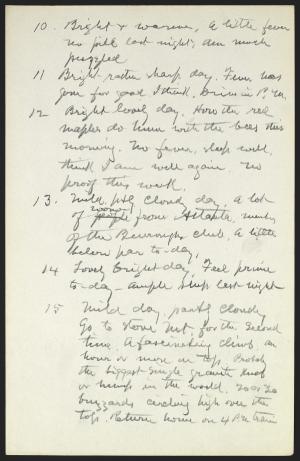 10. Bright & warm, a little fever
no pill last night, am much
puzzled
11 Bright rather sharp day. Fever has
gone for good I think. Drive in P.M.
12 Bright lovely day. How the red
maples do hum with the bees this
morning. No fever, sleep well,
think I am well again. No
proof this week.
13. Mild, ptly cloudy day, a lot
of women people from Atlanta, members
of the Burroughs club. A little
below par to-day.
14 Lovely bright day, Feel prime
to-day — ample sleep last night
15 Mild day, partly cloudy
Go to Stone Mt. for the second
time. A fascinating climb, an
hour or more on top. Probably
the biggest single granite rock
in the world. 20 or 30
buzzards circling high over the
top. Return home on 4 P.M. train